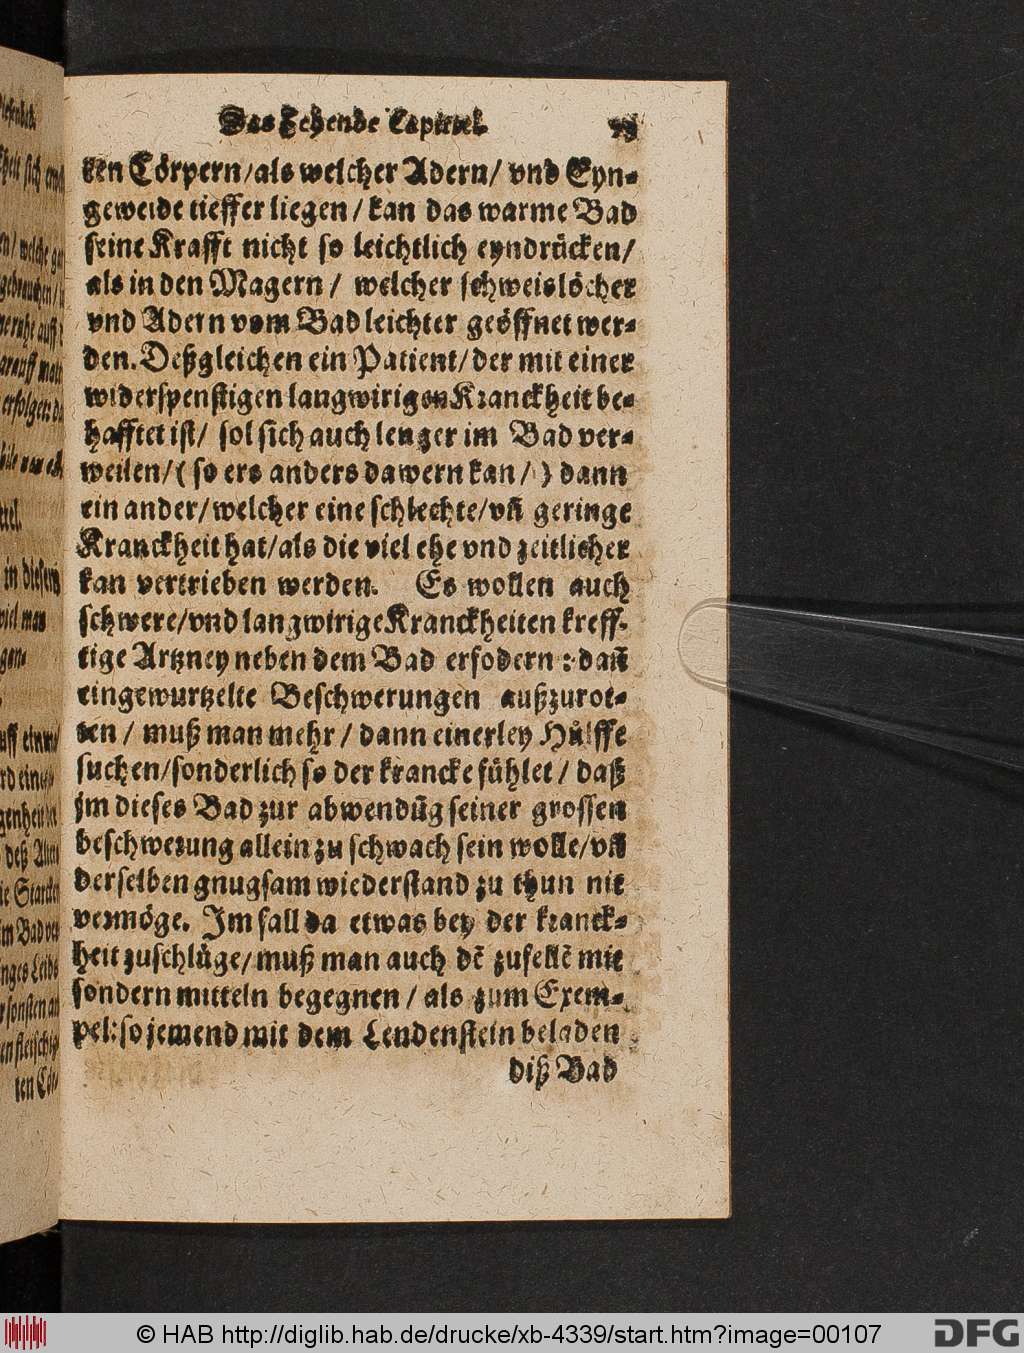 Das Zehende Capittel.
ken Cörpern/als welcher Adern/ vnd Eyn-
geweide tieffer liegen/ kan das warme Bad
seine Krafft nicht so leichtlich eyndrücken/
als in den Magern/ welcher schweislöcher
vnd Adern vom Bad leichter geöffnet wer-
den. Deßgleichen ein Patient/der mit einer
widerspenstigen langwirigen Kranckheit be-
hafftet ist/ sol sich auch lenger im Bad ver-
weilen/(so ers anders dawern kan/) dann
ein ander/welcher eine schlechte/vñ geringe
Kranckheit hat/als die viel ehe vnd zeitlicher
kan vertrieben werden. Es wollen auch
schwere/vnd langwirige Kranckheiten kreff-
tige Artzney neben dem Bad erfodern: dañ
eingewurtzelte Beschwerungen außzurot-
ten/ muß man mehr/ dann einerley Hülffe
suchen/sonderlich so der krancke fühlet/ daß
jm dieses Bad zur abwendũg seiner grossen
beschwerung allein zu schwach sein wolle/vñ
derselben gnugsam wiederstand zu thun nit
vermöge. Im fall da etwas bey der kranck-
heit zuschlüge/muß man auch dẽ zufellẽ mit
sondern mitteln begegnen/ als zum Exem-
pel: so jemend mit dem Lendenstein beladen
diß Bad
© HAB http://diglib.hab.de/drucke/xb-4339/start.htm?image=00107
DFG